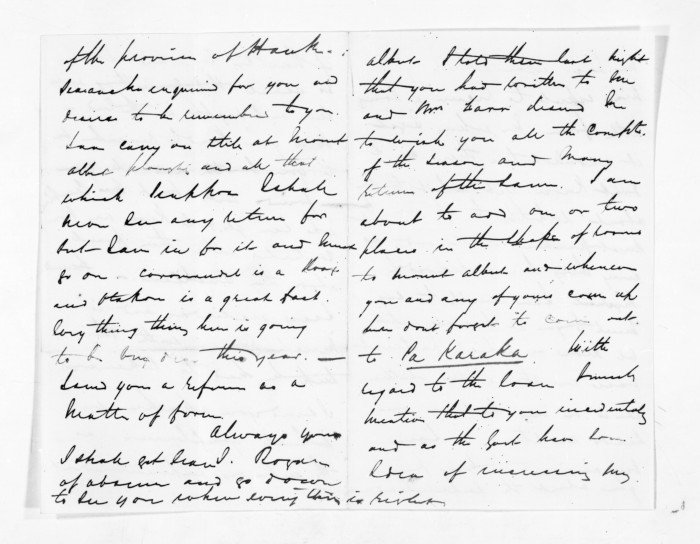 of the province of Hawke
enquired for you and
desires to be remembered to you.
I am carrying on still at Mount
Albert and all that
which I shall
never see any return for
but I am in for it and must
go on - Coromandel is a Hoax
and is a great fact.
Every thing here is going
to be this year. —
Send you a return as a
matter of form
Always yours
I shall get leave Rogan
of absence and go down
to see you when every thing is right
Albert I told them last night
that you had written to me
and Mrs desired me
to wish you all the compts.
of the season and many
returns of the same. I am
about to add one or two
places in the shape of rooms
to Mount Albert and whenever
you and any of yours come up
here don't forget to come out
to Pa Karaka. With
regard to the loan I merely
mention that to you incidentally
and as the Govt have some
idea of increasing my